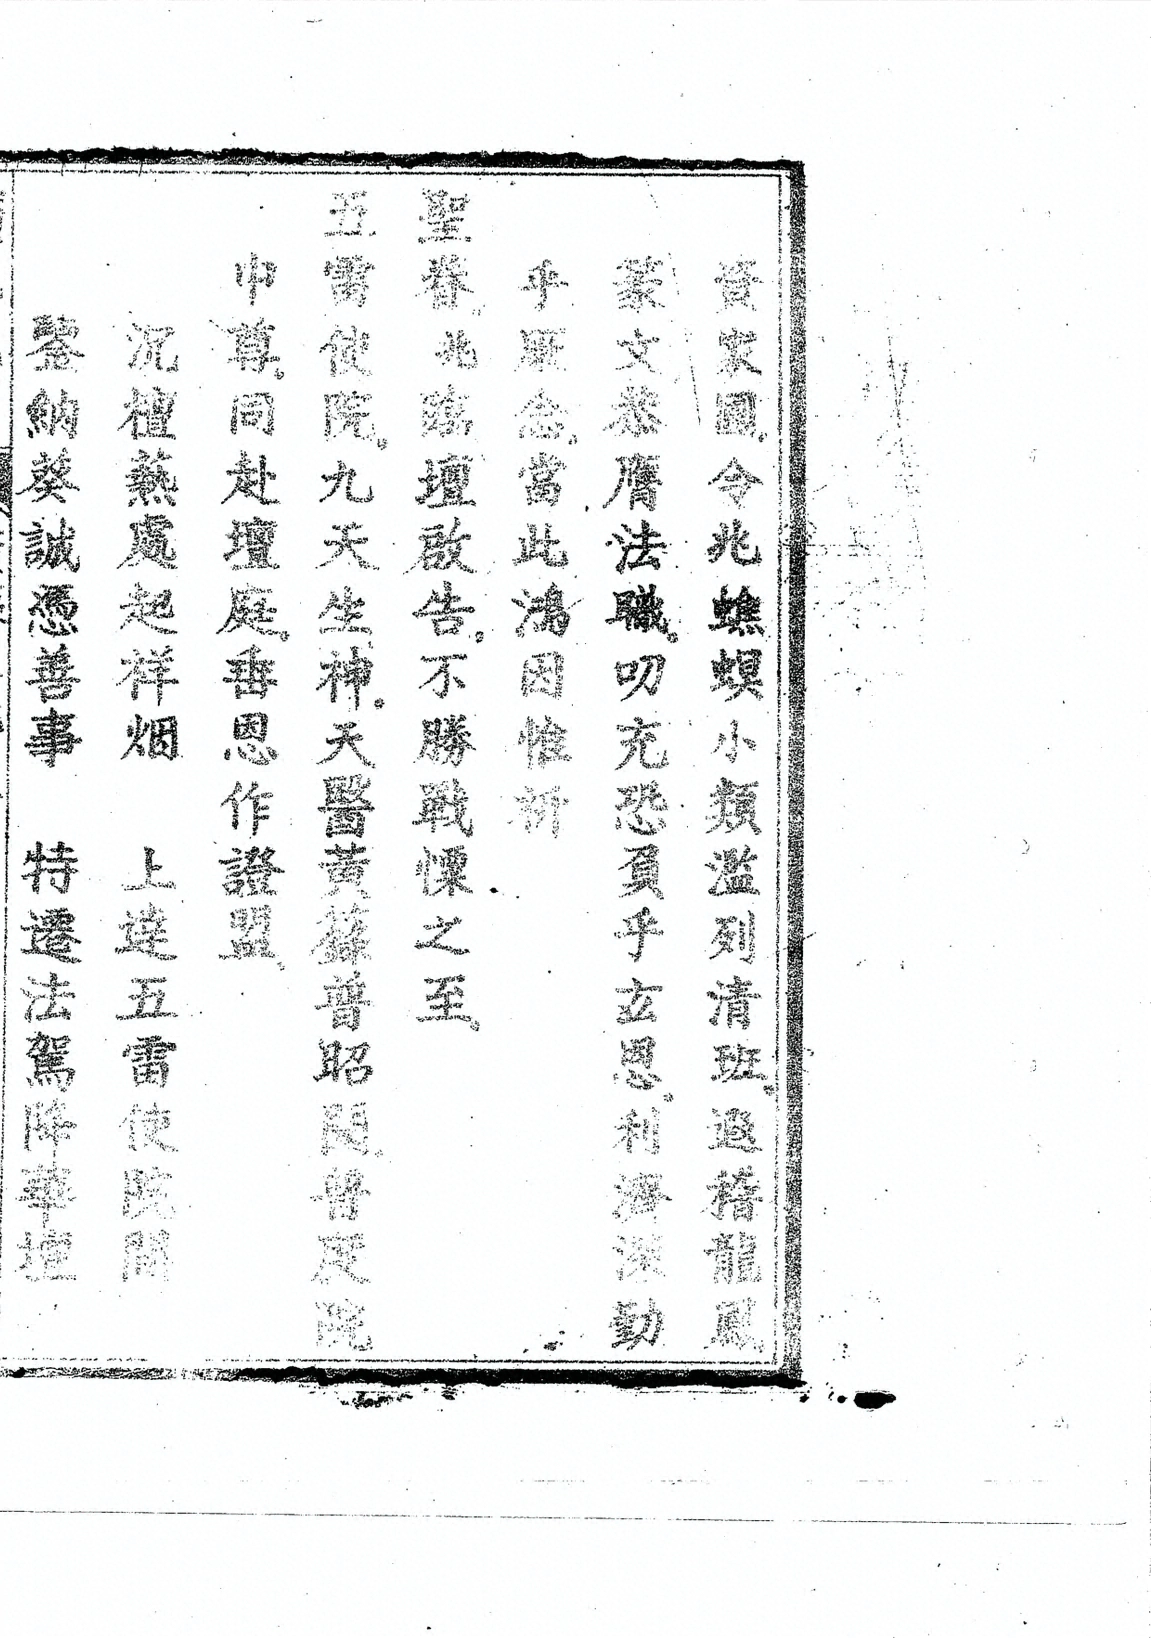 資家國。令兆蟭螟小類濫列清班。遐稽龍鳳
篆文恭膺法職。叨充恐負乎玄恩。利濟深勤
乎厥念。當此鴻因惟祈
聖眷。兆臨壇啟告。不勝戰慄之至。
五雷使院。九天生神。天醫黃籙普昭閱。普度院
中尊。同赴壇庭。垂恩作證盟。
沉檀爇處起祥烟 上達五雷使院間
鑒納葵誠憑善事 特遷法駕降華壇